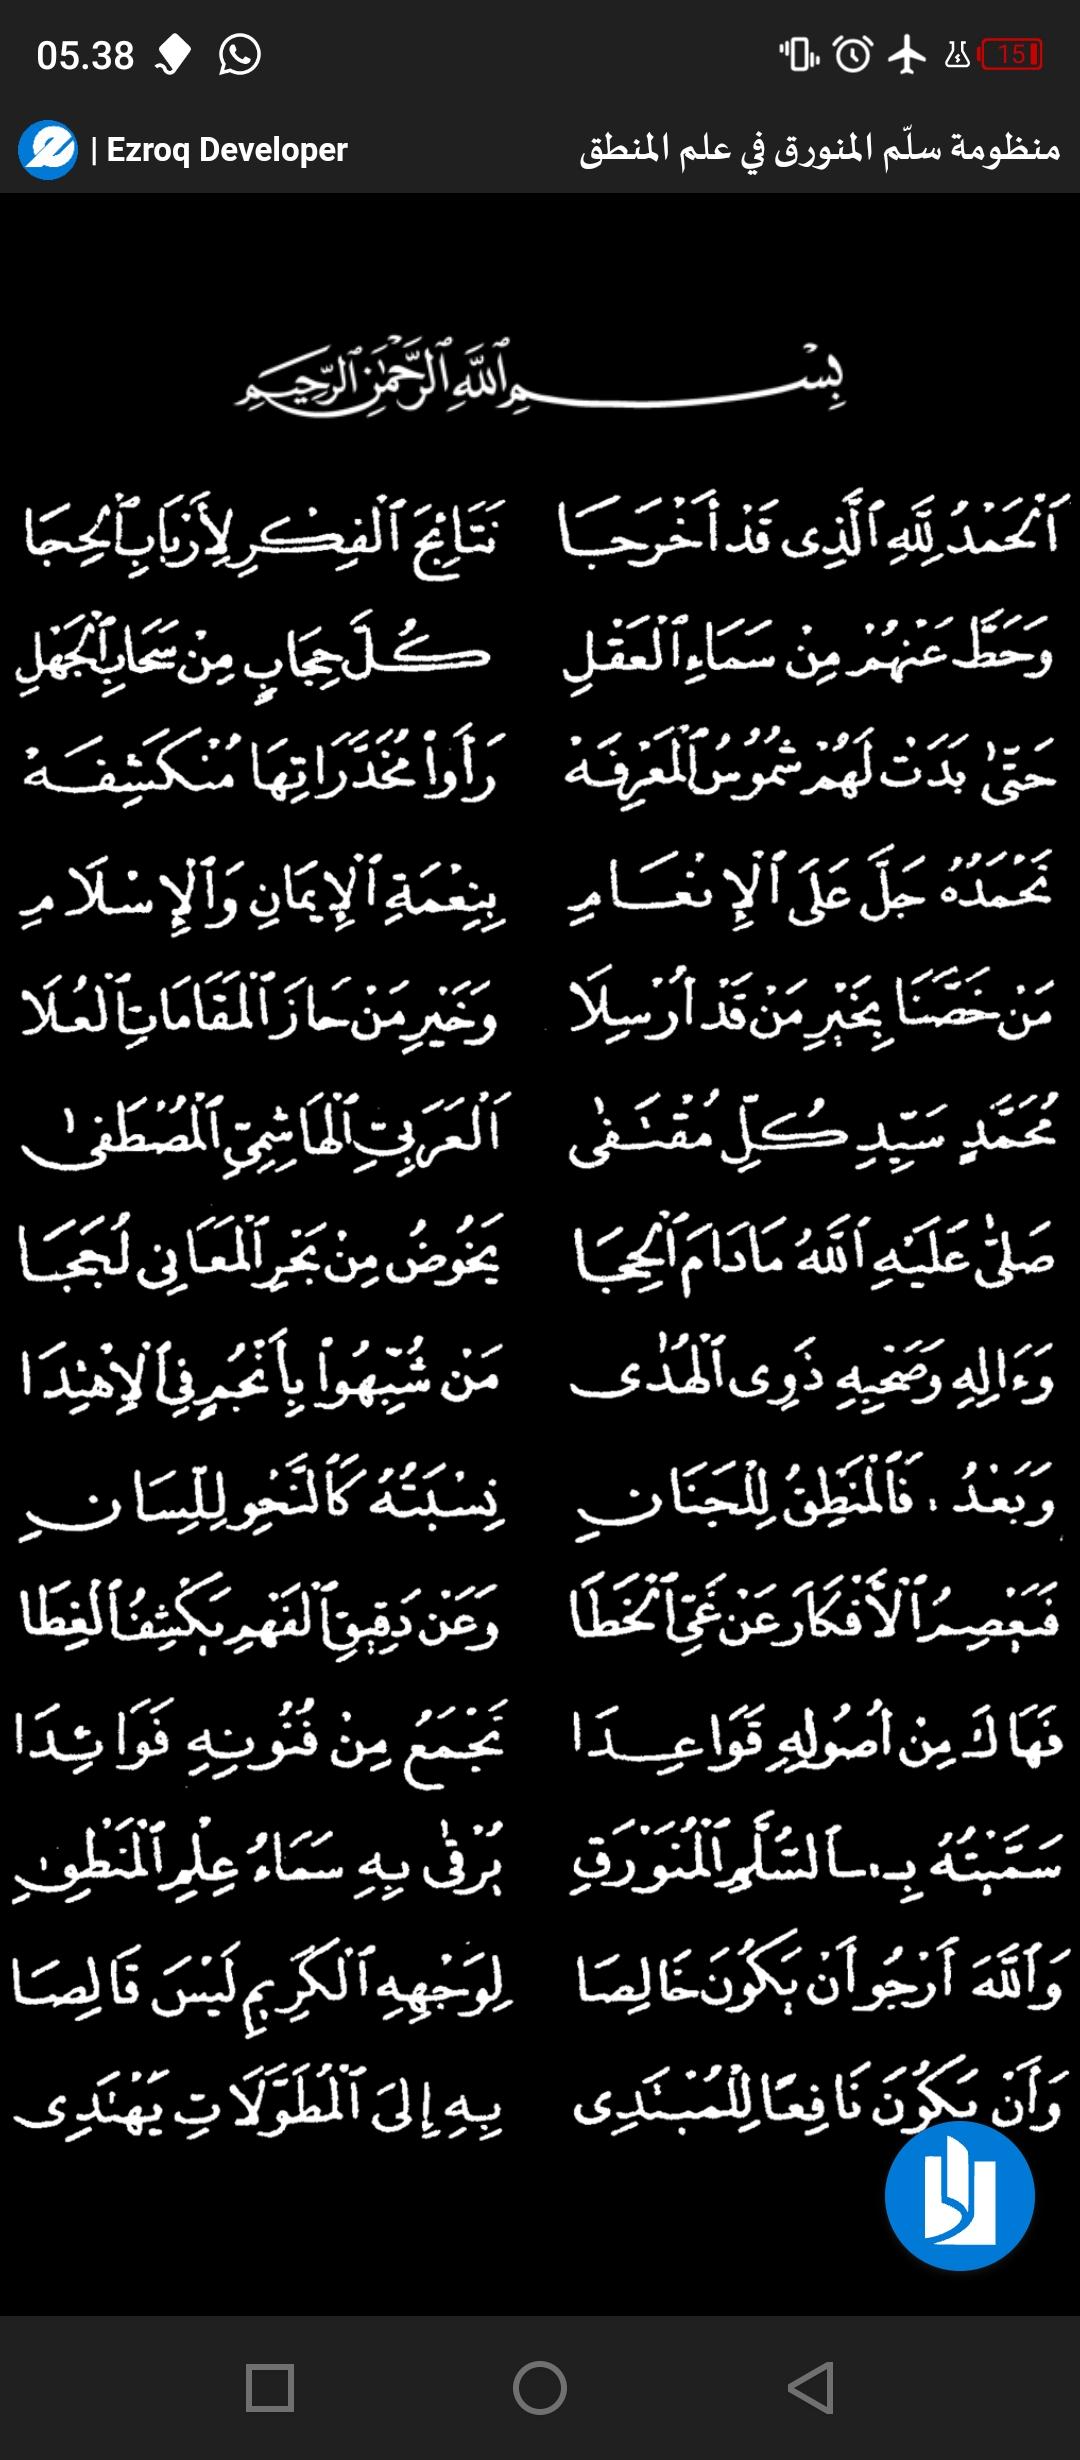 05.38
15
| Ezroq Developer
منظومة سلّم المنورق في علم المنطق
بِسْمِ ٱللَّهِ ٱلرَّحْمَٰنِ ٱلرَّحِيمِ
اَلْحَمْدُ لِلَّهِ الَّذِى قَدْ أَخْرَجَا نَتَائِجَ الْفِكْرِ لِأَرْبَابِ الْحِجَا
وَحَطَّ عَنْهُمْ مِنْ سَمَاءِ الْعَقْلِ كُلَّ حِجَابٍ مِنْ سَحَابِ الْجَهْلِ
حَتَّىٰ بَدَتْ لَهُمْ شُمُوسُ الْمَعْرِفَهْ رَأَوْا مُخَدَّرَاتِهَا مُنْكَشِفَهْ
نَحْمَدُهُ جَلَّ عَلَى الْإِنْعَامِ بِنِعْمَةِ الْإِيمَانِ وَالْإِسْلَامِ
مَنْ خَصَّنَا بِخَيْرِ مَنْ قَدْ أُرْسِلَا وَخَيْرِ مَنْ حَازَ الْمَقَامَاتِ الْعُلَا
مُحَمَّدٍ سَيِّدِ كُلِّ مُقْتَفَىٰ اَلْعَرَبِيِّ الْهَاشِمِيِّ الْمُصْطَفَىٰ
صَلَّىٰ عَلَيْهِ اللَّهُ مَا دَامَ الْحِجَا يَخُوضُ مِنْ بَحْرِ الْمَعَانِى لُجَجَا
وَءَالِهِ وَصَحْبِهِ ذَوِى الْهُدَىٰ مَنْ شُبِّهُوا بِأَنْجُمٍ فِى الْاِهْتِدَا
وَبَعْدُ، فَالْمَنْطِقُ لِلْجَنَانِ نِسْبَتُهُ كَالنَّحْوِ لِلِّسَانِ
فَيَعْصِمُ الْأَفْكَارَ عَنْ غَيِّ الْخَطَا وَعَنْ دَقِيقِ الْفَهْمِ يَكْشِفُ الْغِطَا
فَهَاكَ مِنْ أُصُولِهِ قَوَاعِدَا تَجْمَعُ مِنْ فُنُونِهِ فَوَائِدَا
سَمَّيْتُهُ بِـ: ـالسُّلَّمِ الْمُنَوْرَقِ يُرْقَىٰ بِهِ سَمَاءُ عِلْمِ الْمَنْطِقِ
وَاللَّهَ أَرْجُو أَنْ يَكُونَ خَالِصَا لِوَجْهِهِ الْكَرِيمِ لَيْسَ قَالِصَا
وَأَنْ يَكُونَ نَافِعًا لِلْمُبْتَدِى بِهِ إِلَى الْمُطَوَّلَاتِ يَهْتَدِى